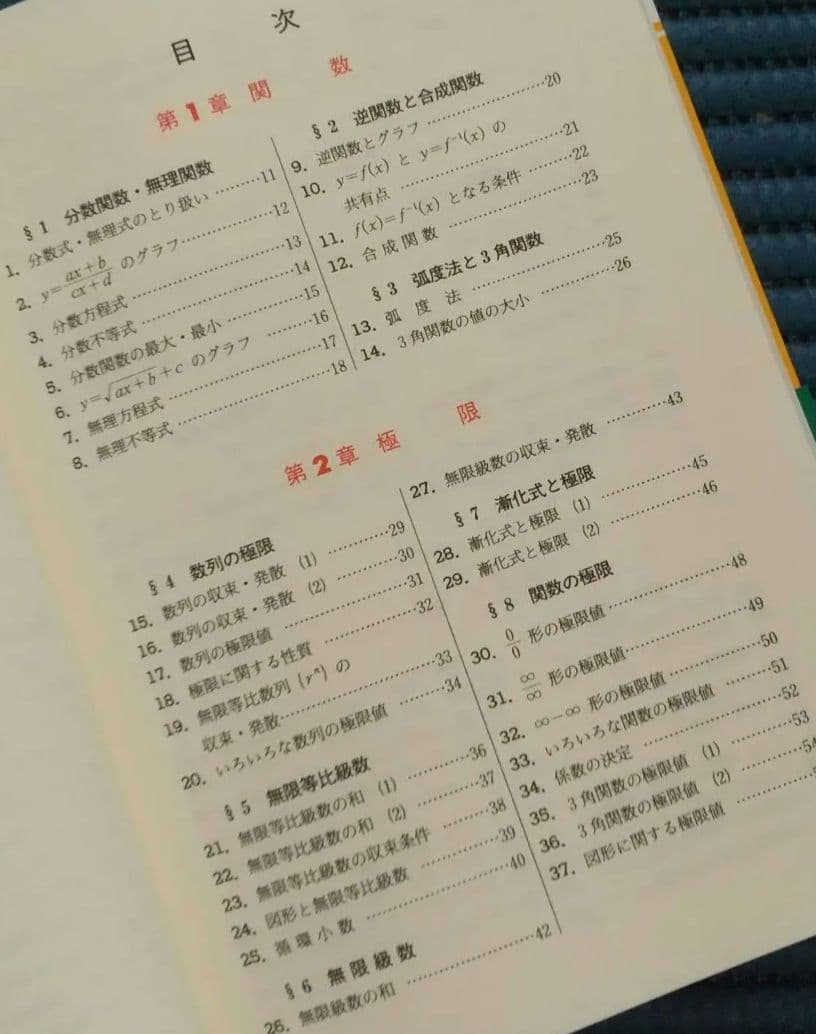 目次
第1章 関数
§1 分数関数・無理関数
1. 分数式・無理式のとり扱い ………11
2. y=\frac{ax+b}{cx+d} のグラフ……………12
3. 分数方程式 ……………………13
4. 分数不等式 ……………………14
5. 分数関数の最大・最小 …………15
6. y=√(ax+b)+c のグラフ ………16
7. 無理方程式 ……………………17
8. 無理不等式 ……………………18
§2 逆関数と合成関数
9. 逆関数とグラフ ………………20
10. y=f(x) と y=f⁻¹(x) の
共有点 …………………………21
11. f(x)=f⁻¹(x) となる条件 ………22
12. 合成関数 ………………………23
§3 弧度法と3角関数
13. 弧度法 …………………………25
14. 3角関数の値の大小 ……………26
第2章 極限
§4 数列の極限
15. 数列の収束・発散 (1) …………29
16. 数列の収束・発散 (2) …………30
17. 数列の極限値 …………………31
18. 極限に関する性質 ……………32
19. 無限等比数列 {rⁿ} の
収束・発散………………………33
20. いろいろな数列の極限値 ………34
§5 無限等比級数
21. 無限等比級数の和 (1) …………36
22. 無限等比級数の和 (2) …………37
23. 無限等比級数の収束条件 ………38
24. 図形と無限等比級数 …………39
25. 循環小数 ………………………40
§6 無限級数
26. 無限級数の和 …………………42
27. 無限級数の収束・発散 …………43
§7 漸化式と極限
28. 漸化式と極限 (1) ……………45
29. 漸化式と極限 (2) ……………46
§8 関数の極限
30. \frac{0}{0} 形の極限値……………………48
31. \frac{∞}{∞} 形の極限値……………………49
32. ∞−∞ 形の極限値………………50
33. いろいろな関数の極限値 ………51
34. 係数の決定 ……………………52
35. 3角関数の極限値 (1) …………53
36. 3角関数の極限値 (2) …………54
37. 図形に関する極限値 …………